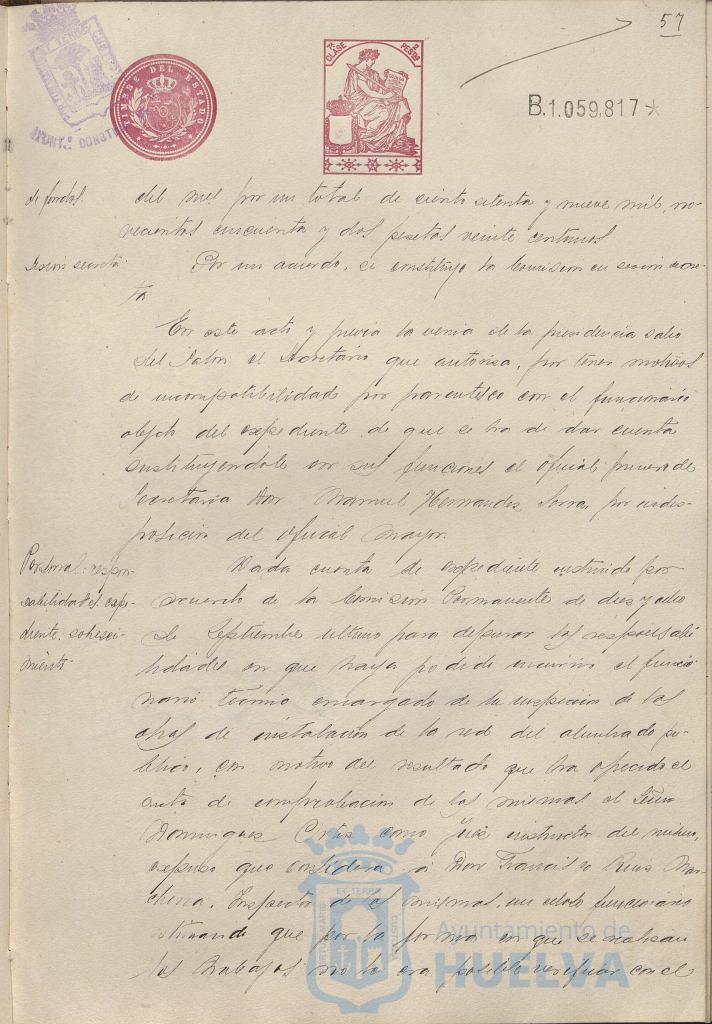 57
TIMBRE DEL ESTADO
7ª CLASE
2 PESTAS
B.1.059.817
de fondos.
del mes por un total de ciento setenta y nueve mil, no-
vecientas cincuenta y dos pesetas veinte centimos
Sesion secreta
Por un acuerdo, se constituyo la Comision en sesion secre-
ta
En este acto y previa la venia de la presidencia salio
del Salon el Secretario que autoriza, por tener motivos
de incompatibilidad por parentesco con el funcionario
objeto del expediente de que se ha de dar cuenta
sustituyendole en sus funciones el oficial primero de
Secretaria Don Manuel Hernandez Serra, por indis-
posicion del Oficial Mayor.
Personal: respon-
sabilidades, expe-
diente: sobresei-
miento
Dada cuenta de expediente instruido por
acuerdo de la Comision Permanente de diez y ocho
de Septiembre ultimo para depurar las responsabi-
lidades en que haya podido incurrir el funcio-
nario tecnico encargado de la inspeccion de las
obras de instalacion de la red del alumbrado pu-
blico, con motivo del resultado que ha ofrecido el
acto de comprobacion de las mismas el Señor
Dominguez Ortiz como Juez instructor del mismo,
expuso que considera a Don Francisco Ruiz Mar-
chena, Inspector de las mismas, un celoso funcionario
estimando que por la forma en que se realizan
los trabajos no le era posible verificar con el
Ayuntamiento de
HUELVA